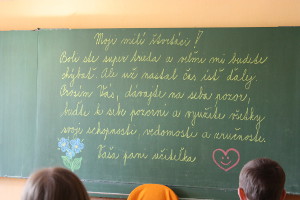 Moji milí štvrtáci!
Boli ste super trieda a veľmi mi budete
chýbať. Ale už nastal čas ísť ďalej.
Prosím Vás, dávajte na seba pozor,
buďte k sebe pozorní a využite všetky
svoje schopnosti, vedomosti a zručnosti.
Vaša pani učiteľka